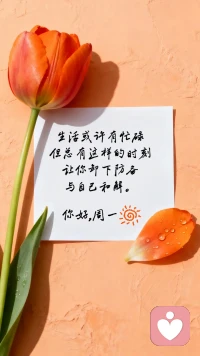 生活或许有忙碌
但总有这样的时刻
让你卸下防备
与自己和解。
你好,周一